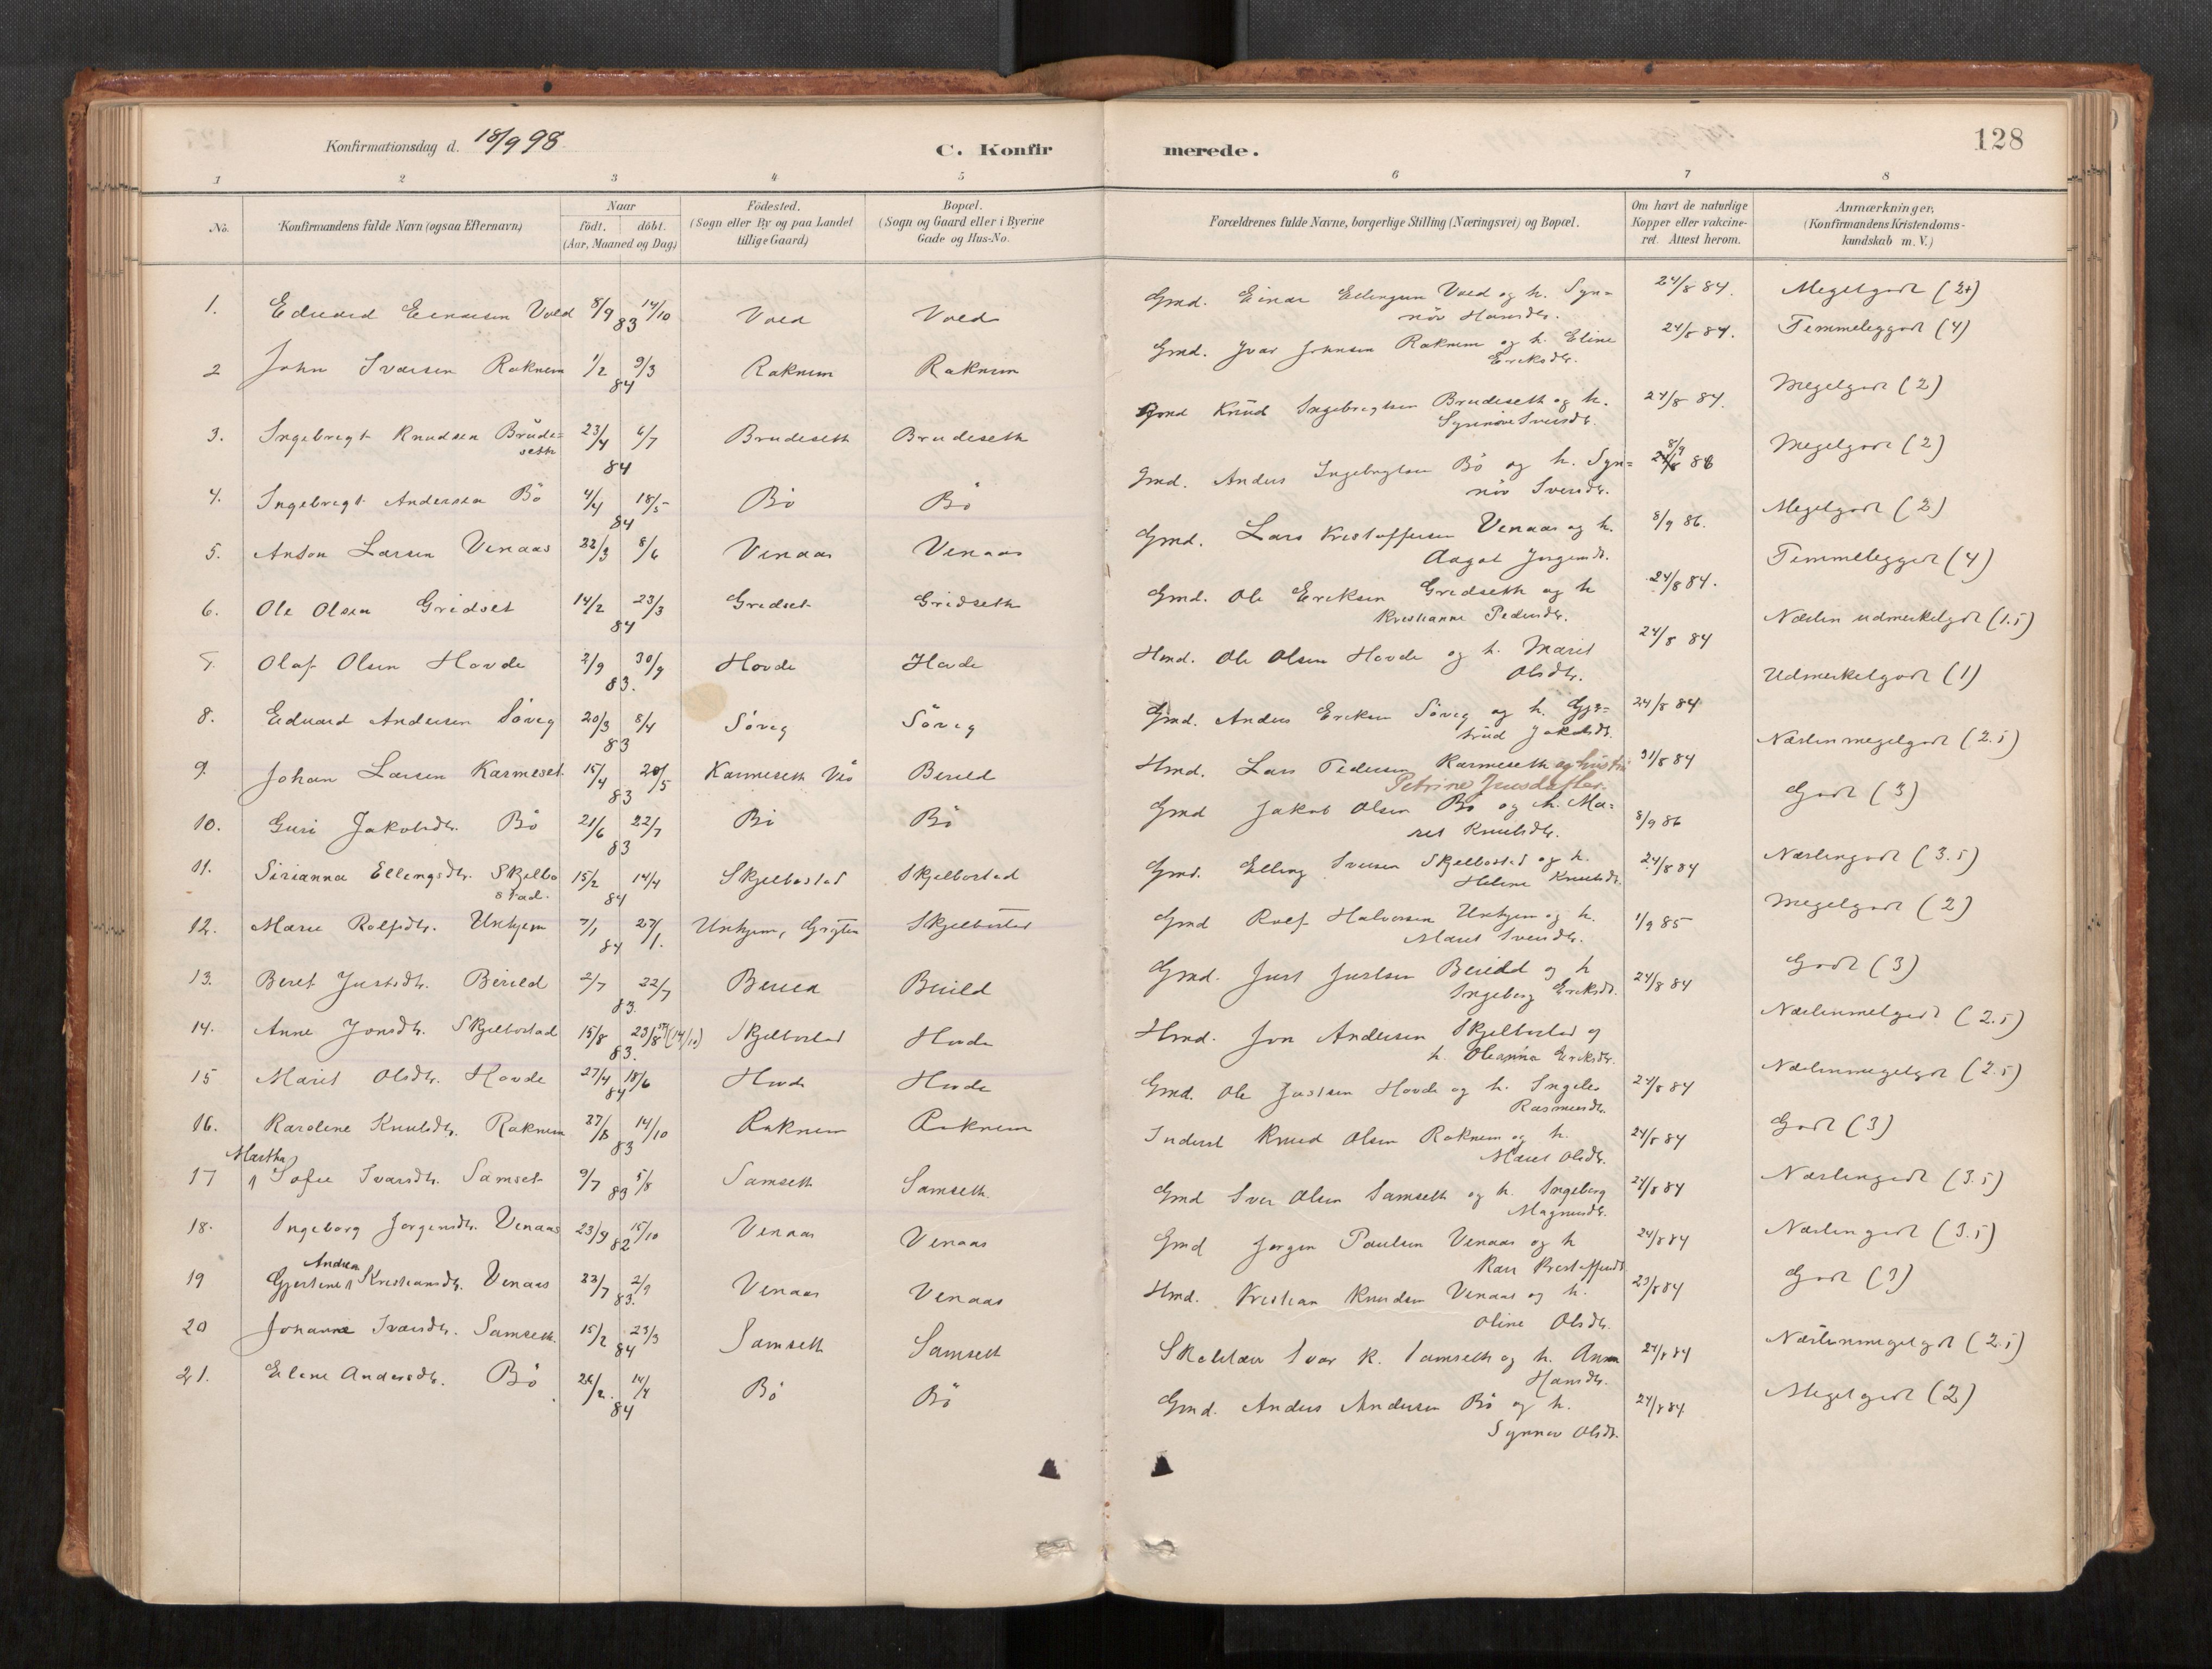 Konfirmationsdag d. 18/9 98
C. Konfirmerede.
128
1 2 3 4 5 6 7 8
No. Konfirmandens fulde Navn (ogsaa Efternavn) Naar födt. döbt. (Aar, Maaned og Dag) Födested. (Sogn eller By og paa Landet tillige Gaard) Bopæl. (Sogn og Gaard eller i Byerne Gade og Hus-No. Forældrenes fulde Navne, borgerlige Stilling (Næringsvei) og Bopæl. Om havt de naturlige Kopper eller vakcineret. Attest herom. Anmærkninger. (Konfirmandens Kristendomskundskab m. V.)
1. Edvard Einarsen Vold 8/9 14/10 83 Vold Vold Gmd. Einar Ellingsen Vold og h. Synnöv Hansdtr. 24/8 84. Megetgodt (2+)
2 John Ivarsen Raknem 1/2 9/3 84 Raknem Raknem Gmd. Ivar Johnsen Raknem og h. Eline Eriksdtr. 24/8 84. Temmeliggodt (4)
3. Ingebrigt Knudsen Brudeseth 23/4 6/7 84 Brudeseth Brudeseth Gmd Knud Ingebrigtsen Brudeseth og h. Synnöve Iversdtr. 24/8 84. Megetgodt (2)
4. Ingebrigt Andersen Bö 4/4 18/5 84 Bö Bö Gmd. Anders Ingebrigtsen Bö og h. Synnöv Iversdtr. 8/9 86 Megetgodt (2)
5. Anton Larsen Venaas 22/3 8/6 Venaas Venaas Gmd. Lars Kristoffersen Venaas og h. Aagot Jörgensdt. 8/9 86. Megetgodt (2)
6. Ole Olsen Gridset 14/2 23/3 84 Gridset Gridseth Gmd. Ole Eriksen Gridseth og h Kristianne Pedersdtr. 24/8 84. Temmeliggodt (4)
7. Olaf Olsen Hovde 2/9 30/9 83. Hovde Hovde Hmd. Ole Olsen Hovde og h. Marit Olsdtr. 24/8 84 Næsten udmerketgodt (1.5)
8. Edvard Andersen Söveg 20/3 8/4 83 Söveg Söveg Gmd. Anders Eriksen Söveg og h. Gjertrud Jakobsdt. 24/8 84 Udmerketgodt (1)
9. Johan Larsen Karmeset 15/4 20/5 83 Karmeseth Berild Hmd. Lars Pedersen Karmeseth og hustru Petrine Jensdatter. 31/8 84 Næstenmegetgodt (2.5)
10. Guri Jakobsdtr. Bö 21/6 22/7 83 Bö Bö Gmd Jakob Olsen Bö og h. Maret Knutsdtr. 8/9 86 Godt (3)
11. Sirianna Ellingsdtr. Skjelbostad. 15/2 14/4 84 Skjelbostad Skjelbostad Gmd. Elling Iversen Skjelbostad og h. Helene Knutsdt. 24/8 84 Næstengodt (3.5)
12. Marie Rolfsdtr. Unhjem 7/1 27/1. 84 Unhjem, Grytten Skjelbostad Gmd Rolf Halvorsen Unhjem og h. Maret Iversdtr. 1/9 85 Megetgodt (2)
13. Beret Justsdtr. Berild 2/7 22/7 83. Berild Berild Gmd. Just Justsen Berild og h Ingeborg Eriksdt. 24/8 84 Godt (3)
14. Anne Jonsdtr. Skjelbostad 15/8 23/8 (14/10) 83. Skjelbostad Hovde Hmd. Jon Andersen Skjelbostad og h. Oleanna Eriksdtr. Næstenmetgodt (2.5)
15 Marit Olsdtr. Hovde 27/4 18/6 84 Hovde Hovde Gmd. Ole Justsen Hovde og h. Rasmusdtr. 24/8 84 Næstenmegetgodt (2.5)
16. Karoline Knutsdtr. Raknem 27/8 14/10 83 Raknem Raknem Inderst Knud Olsen Raknem og h. Maret Olsdtr. 24/8 84 Godt (3)
17 Martha Sofie Ivarsdtr. Samset 9/7 5/8 83 Samseth Samseth. Gmd Iver Olsen Samseth og h. Ingeborg Magnusdtr. 24/8 84 Næstengodt (3.5)
18. Ingeborg Jörgensdtr. Venaas 23/9 15/10 82 Venaas Venaas Gmd Jörgen Paulsen Venaas og h Kari Kristoffersdt 24/8 84 Næstengodt (3.5)
19 Gjertine Andrea Kristiansdtr. Venaas 22/7 2/9 83. Venaas Venaas Hmd. Kristian Knudsen Venaas og h. Oline Olsdtr. 23/8 84 Godt (3)
20 Johanna Ivarsdtr. Samseth 15/2 23/3 84 Samseth Samseth Skolelær Ivar K. Samseth og h. Anna Hansdtr. 24/8 84 Næstenmegetgodt (2.5)
21. Elene Andersdtr. Bö 26/2. 14/4 84 Bö Bö Gmd. Anders Andersen Bö og h. Synnev Olsdt. 24/8 84 Megetgodt (2)